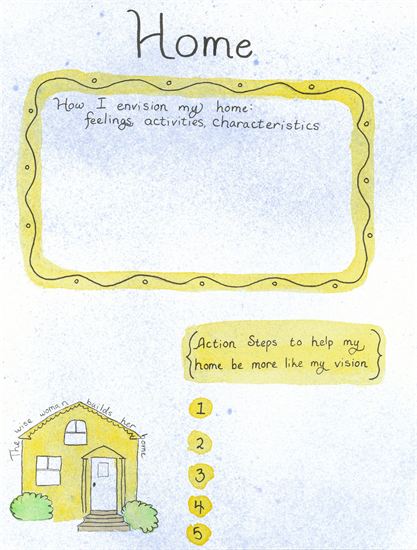 Home
How I envision my home:
feelings, activities, characteristics
Action Steps to help my
home be more like my vision
1
2
3
4
5
The wise woman builds her home